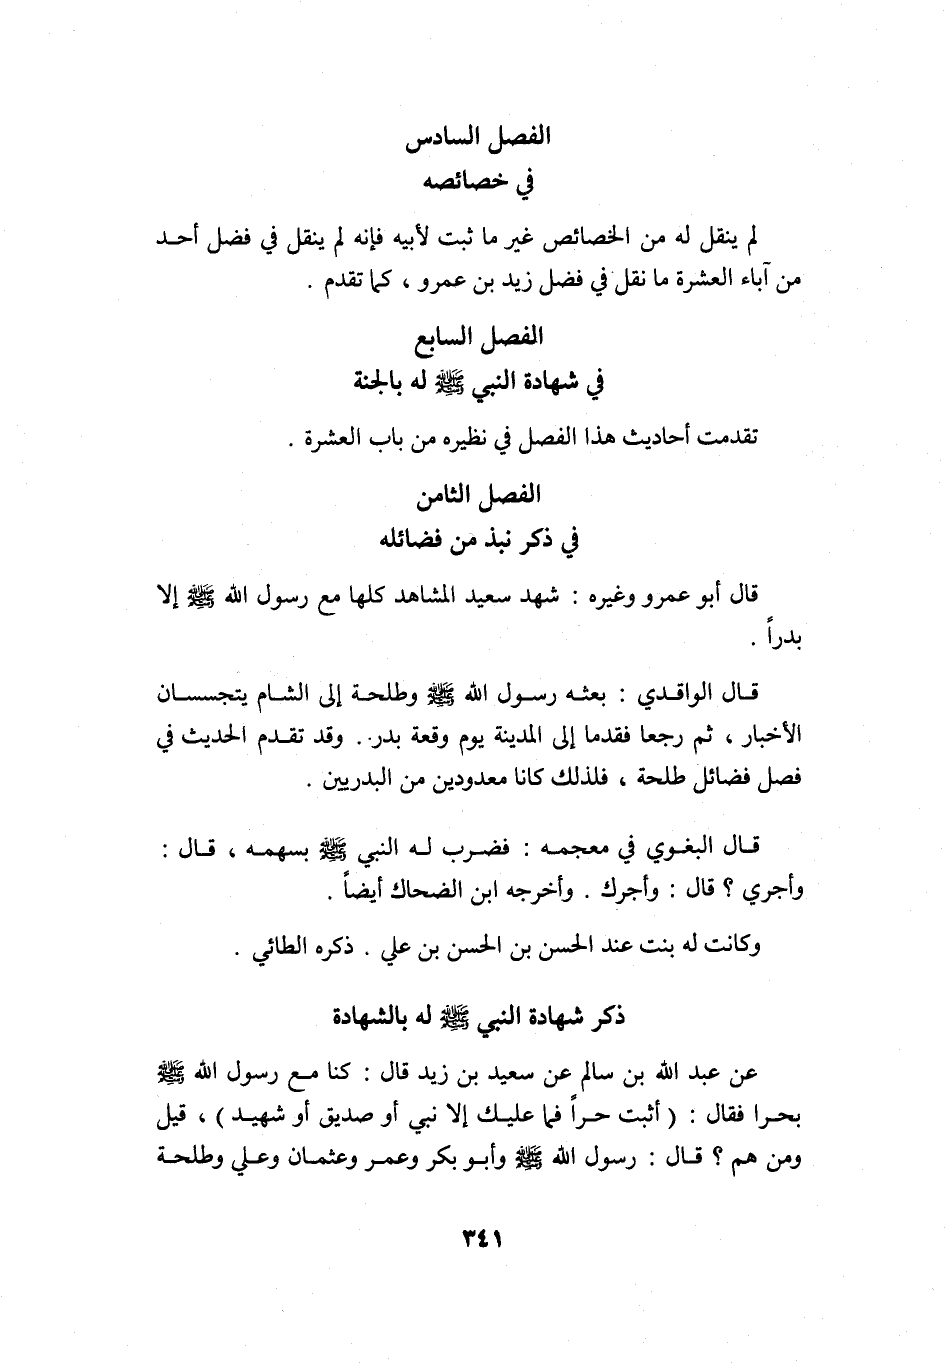 الفصل السادس
في خصائصه
لم ينقل له من الخصائص غير ما ثبت لأبيه فإنه لم ينقل في فضل أحد
من آباء العشرة ما نقل في فضل زيد بن عمرو ، كما تقدم .
الفصل السابع
في شهادة النبي ﷺ له بالجنة
تقدمت أحاديث هذا الفصل في نظيره من باب العشرة .
الفصل الثامن
في ذكر نبذ من فضائله
قال أبو عمرو وغيره : شهد سعيد المشاهد كلها مع رسول الله ﷺ إلا
بدراً .
قال الواقدي : بعثه رسول الله ﷺ وطلحة إلى الشام يتجسسان
الأخبار ، ثم رجعا فقدما إلى المدينة يوم وقعة بدر . وقد تقدم الحديث في
فصل فضائل طلحة ، فلذلك كانا معدودين من البدريين .
قال البغوي في معجمه : فضرب له النبي ﷺ بسهمه ، قال :
وأجري ؟ قال : وأجرك . وأخرجه ابن الضحاك أيضاً .
وكانت له بنت عند الحسن بن الحسن بن علي . ذكره الطائي .
ذكر شهادة النبي ﷺ له بالشهادة
عن عبد الله بن سالم عن سعيد بن زيد قال : كنا مع رسول الله ﷺ
بحرا فقال : ( أثبت حراً فما عليك إلا نبي أو صديق أو شهيد ) ، قيل
ومن هم ؟ قال : رسول الله ﷺ وأبو بكر وعمر وعثمان وعلي وطلحة
٣٤١